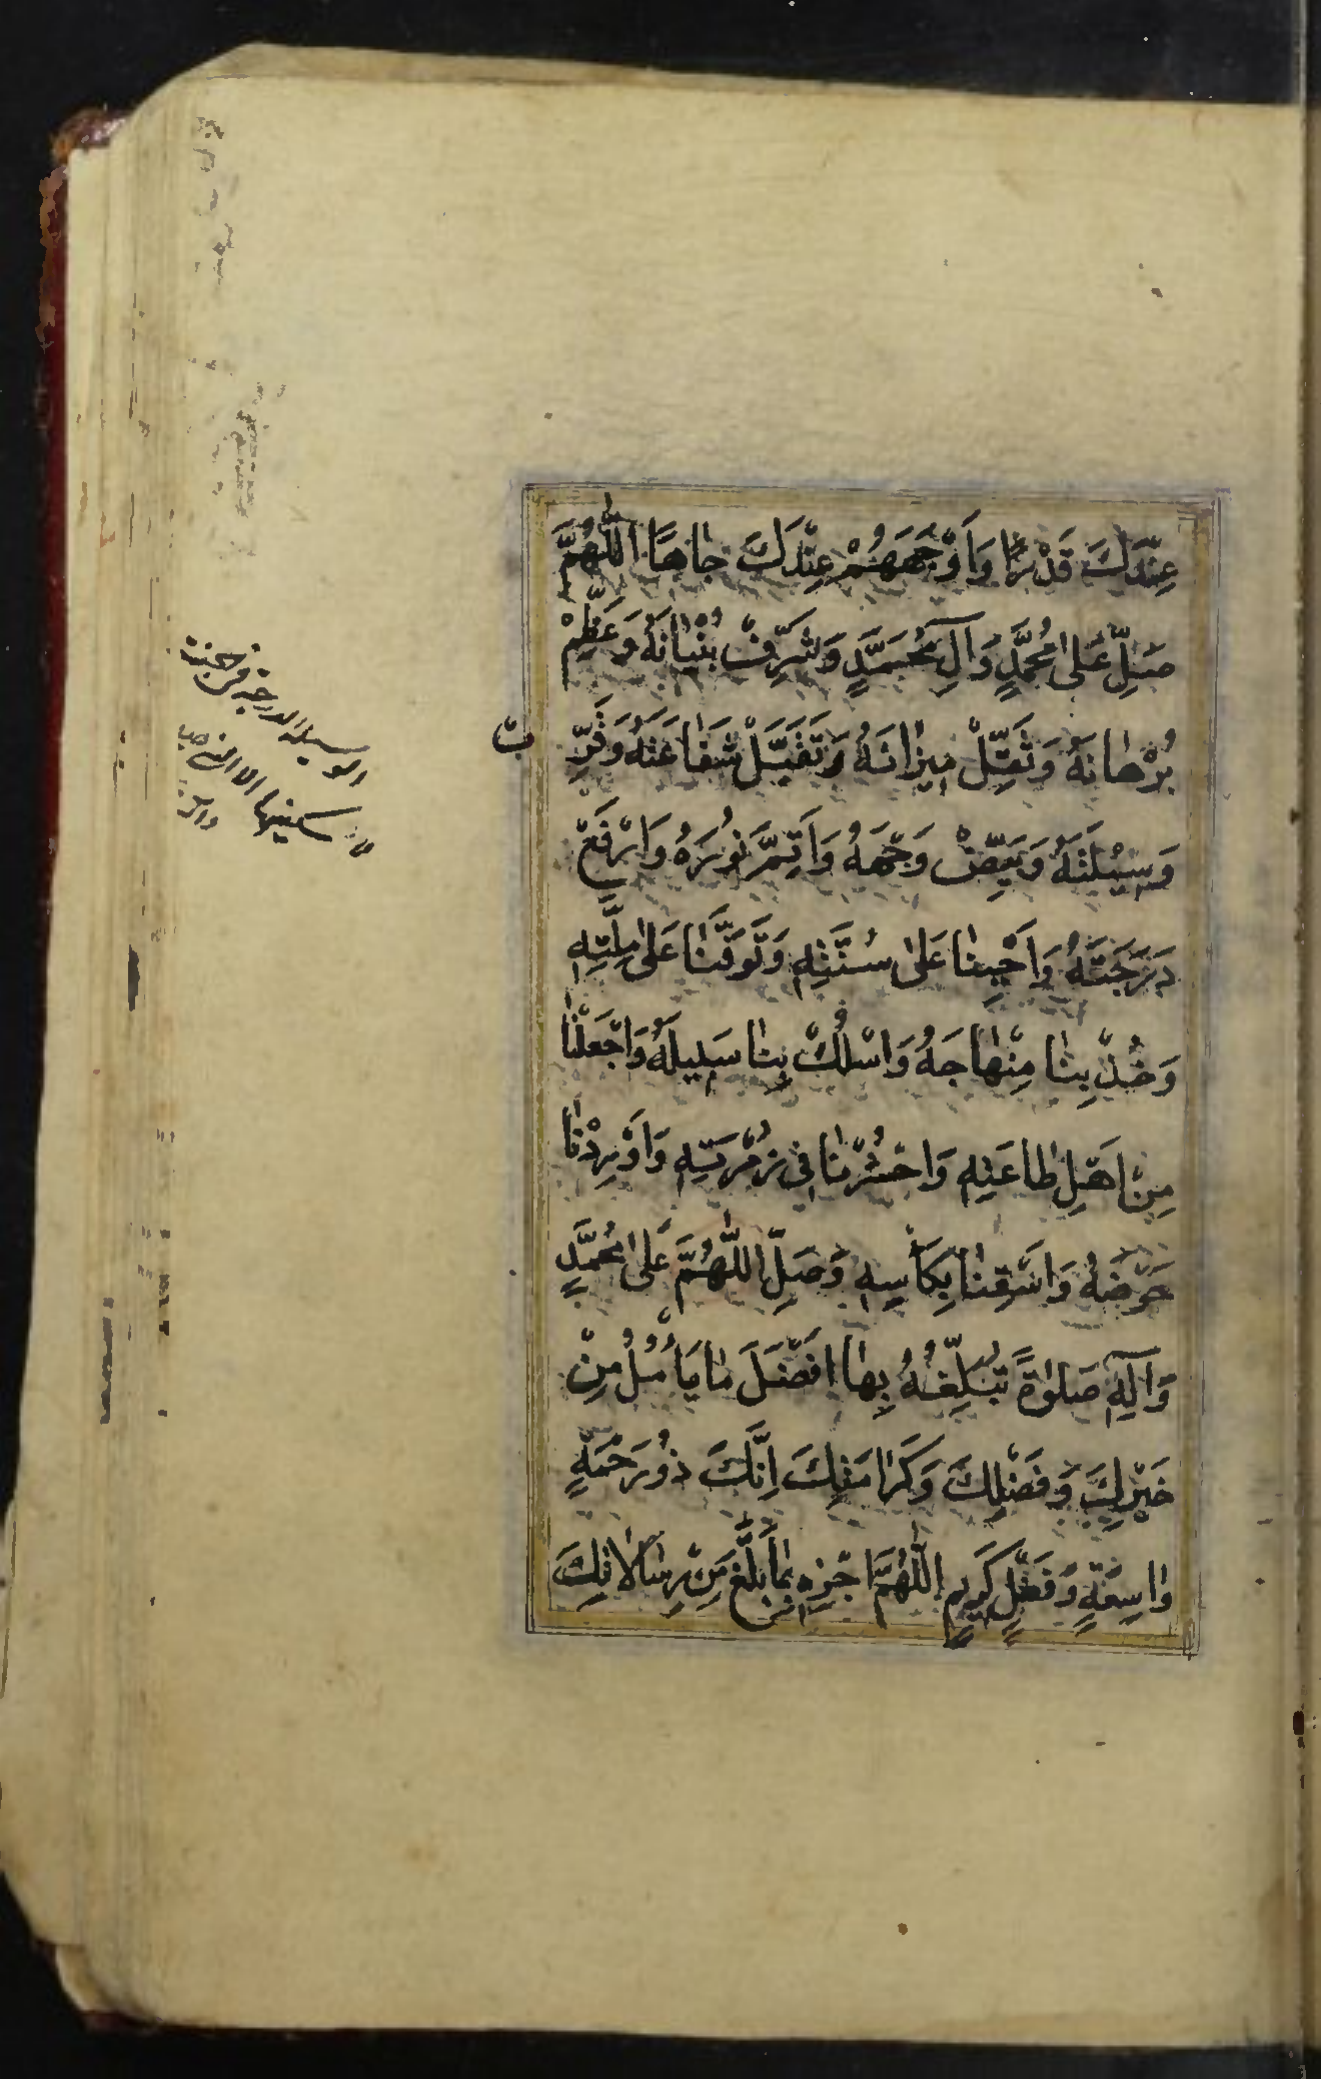 عِنْدَكَ قَدْرًا وَاَوْجَهَهُمْ عِنْدَكَ جَاهًا اَللّٰهُمَّ
صَلِّ عَلٰی مُحَمَّدٍ وَآلِ مُحَمَّدٍ وَشَرِّفْ بُنْيَانَهُ وَعَظِّمْ
بُرْهَانَهُ وَثَقِّلْ مِيزَانَهُ وَتَقَبَّلْ شَفَاعَتَهُ وَقَرِّ
بْ
وَسِيْلَتَهُ وَبَيِّضْ وَجْهَهُ وَاَتِمَّ نُورَهُ وَارْفَعْ
دَرَجَتَهُ وَاَحْيِنَا عَلٰی سُنَّتِهِ وَتَوَفَّنَا عَلٰی مِلَّتِهِ
وَخُذْ بِنَا مِنْهَاجَهُ وَاسْلُكْ بِنَا سَبِيلَهُ وَاجْعَلْنَا
مِنْ اَهْلِ طَاعَتِهِ وَاحْشُرْنَا فِی زُمْرَتِهِ وَاَوْرِدْنَا
حَوْضَهُ وَاسْقِنَا بِكَأْسِهِ وَصَلِّ اللّٰهُمَّ عَلٰی مُحَمَّدٍ
وَآلِهِ صَلٰوةً تُبَلِّغُهُ بِهَا اَفْضَلَ مَا يَأْمُلُ مِنْ
خَيْرِكَ وَفَضْلِكَ وَكَرَامَتِكَ اِنَّكَ ذُو رَحْمَةٍ
وَاسِعَةٍ وَفَضْلٍ كَرِيمٍ اللّٰهُمَّ اجْزِهِ بِمَا بَلَّغَ مِنْ رِسَالَاتِكَ